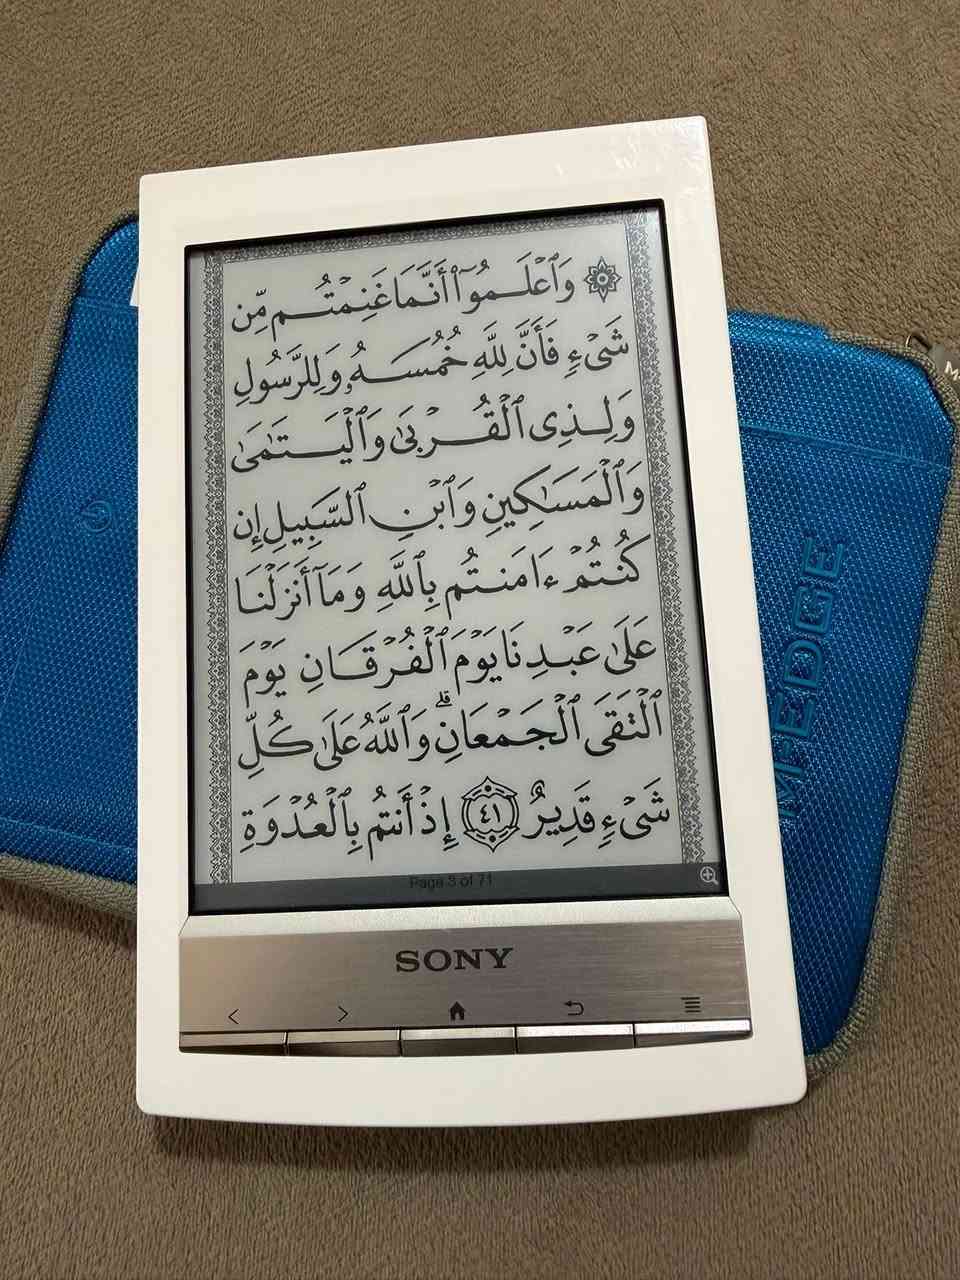 ۞ وَٱعۡلَمُوٓاْ أَنَّمَا غَنِمۡتُم مِّن
شَيۡءٖ فَأَنَّ لِلَّهِ خُمُسَهُۥ وَلِلرَّسُولِ
وَلِذِي ٱلۡقُرۡبَىٰ وَٱلۡيَتَٰمَىٰ
وَٱلۡمَسَٰكِينِ وَٱبۡنِ ٱلسَّبِيلِ إِن
كُنتُمۡ ءَامَنتُم بِٱللَّهِ وَمَآ أَنزَلۡنَا
عَلَىٰ عَبۡدِنَا يَوۡمَ ٱلۡفُرۡقَانِ يَوۡمَ
ٱلۡتَقَى ٱلۡجَمۡعَانِۗ وَٱللَّهُ عَلَىٰ كُلِّ
شَيۡءٖ قَدِيرٌ ٤١ إِذۡ أَنتُم بِٱلۡعُدۡوَةِ
Page 3 of 71
SONY
M-EDGE